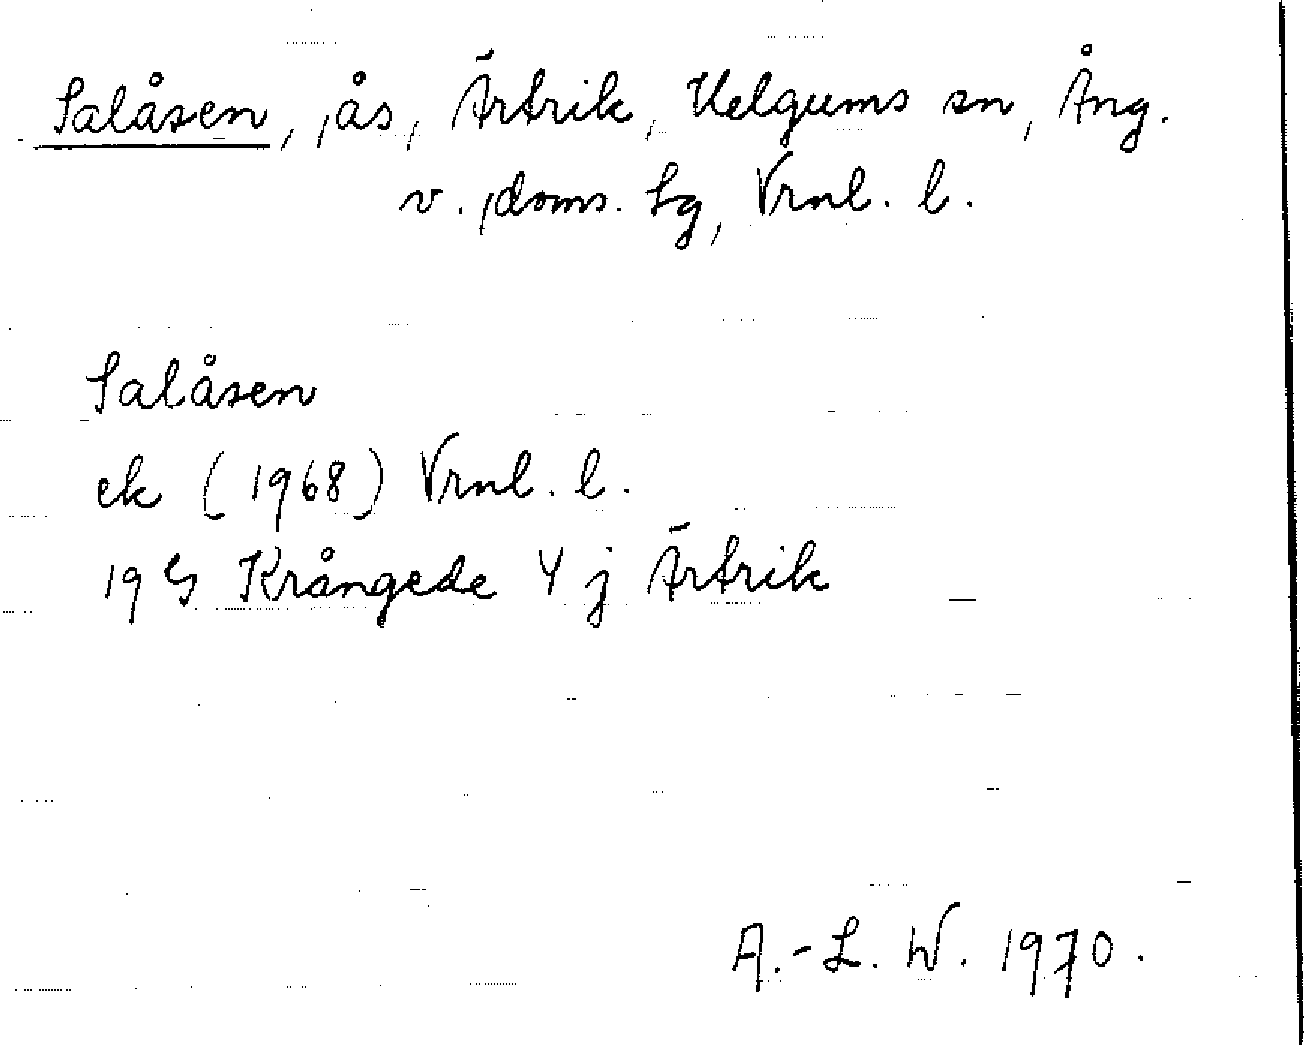 Salåsen, ås, Ärtrik, Helgums sn, Ång.
v. doms. Lg, Vrnl. l.
Salåsen
ek (1968) Vrnl. l.
19 G Krångede 4 j Ärtrik
A.-L. W. 1970.